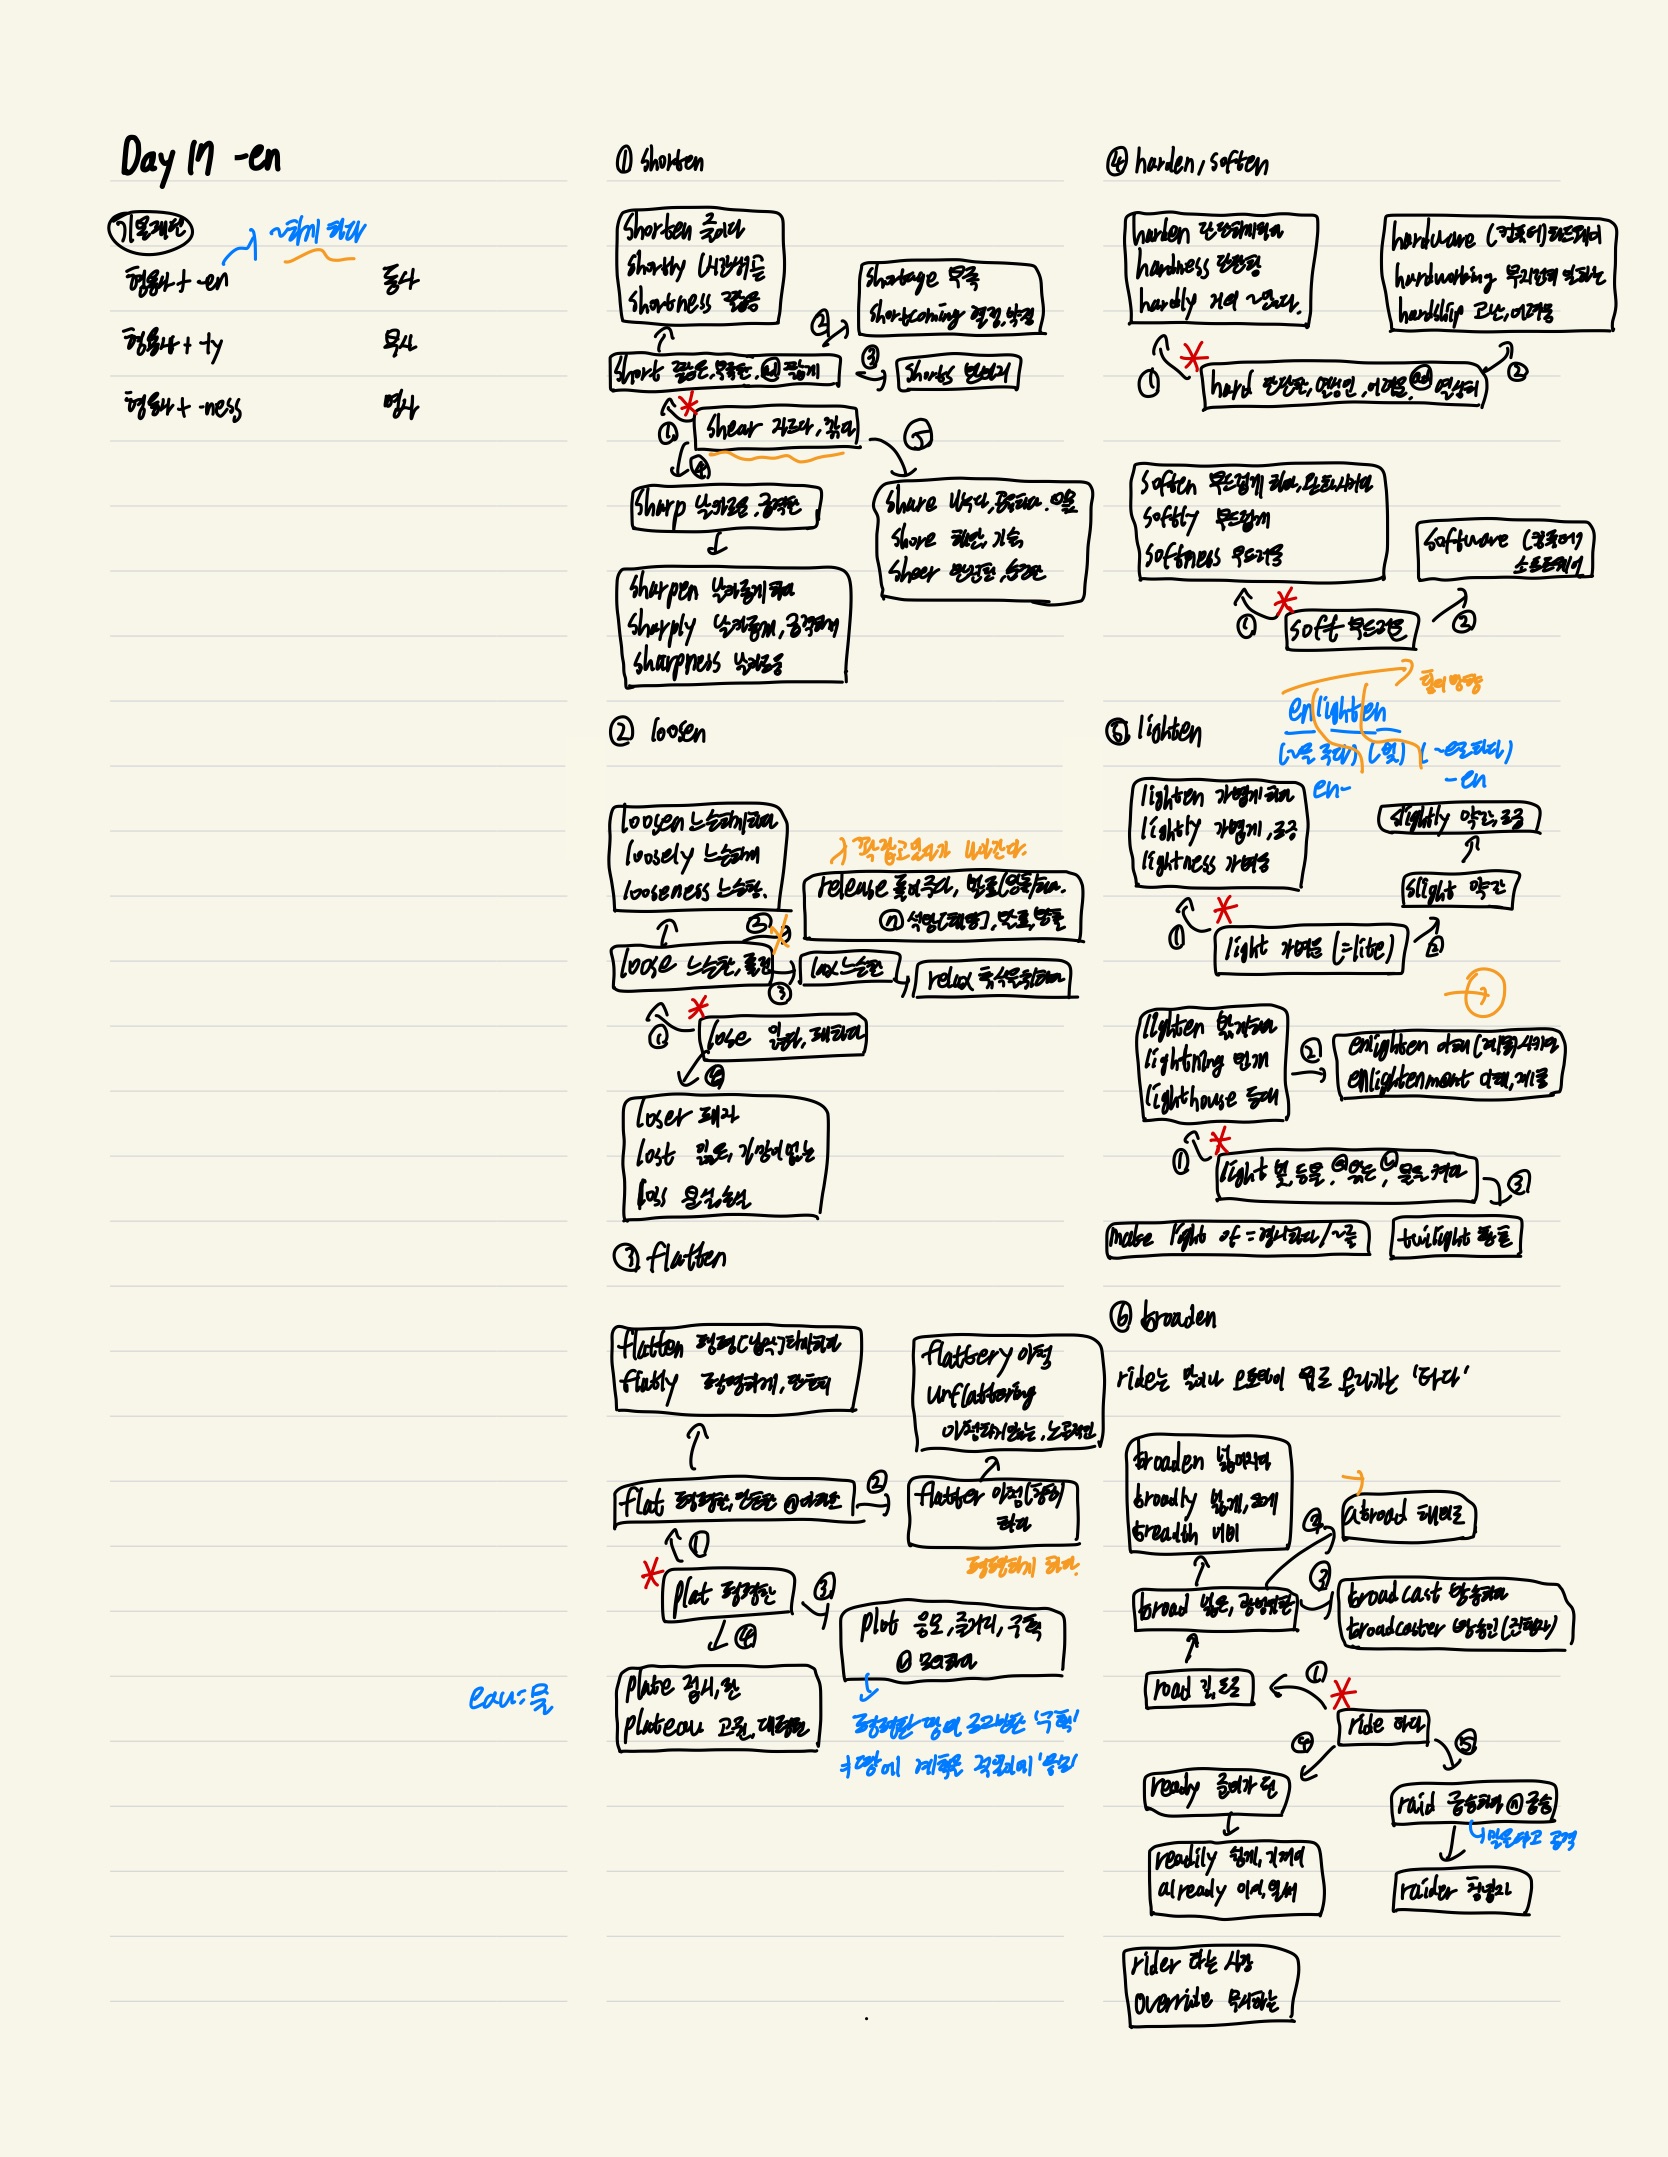 Day 17 -en
~하게 하다
형용사 + -en 동사
형용사 + ty 목사
형용사 + -ness 명사
eau=물
① shorten
shorten 줄이다
shortly (시간상)곧
shortness 짧음
② shortage 부족
shortcoming 결점, 약점
short 짧은, 부족한, ad 짧게
③ shorts 반바지
① shear 자르다, 깎다
④
⑤
sharp 날카로운, 급격한
share 나누다, 공유하다. 몫
shore 해안, 기슭
sheer 완전한, 순전한
sharpen 날카롭게 하다
sharply 날카롭게, 급격하게
sharpness 날카로움
② loosen
loosen 느슨하게하다
loosely 느슨하게
looseness 느슨함.
꽉잡고있다가 나간다.
release 풀어주다, 발표(방출)하다.
ⓝ 석방[해방], 발표, 방출
②
loose 느슨한, 풀린
③
lax 느슨한
relax 휴식을취하다
① lose 잃다, 패하다
④
loser 패자
lost 잃은, 가망이 없는
loss 분실, 손실
③ flatten
flatten 평평(납작)하게하다
flatly 평평하게, 단호히
flattery 아첨
unflattering
아첨하지않는, 노골적인
flat 평평한, 단호한 ⓝ아파트
②
flatter 아첨(향)하
하다
평평하게 하다.
①
plat 평평한
③
④
plot 음모, 줄거리, 구획
ⓥ 모의하다
plate 접시, 판
plateau 고원, 대지
평평한 땅에 그려낸 '구획'
→땅에 계획을 적음 '음모'
④ harden, soften
harden 단단하게하다
hardness 단단함
hardly 거의 ~않다.
hardware (컴퓨터)하드웨어
hardworking 부지런히 일하는
hardship 고난, 어려움
①
②
hard 단단한, 열심인, 어려운, ad 열심히
soften 부드럽게 하다, 완화시키다
softly 부드럽게
softness 부드러움
software (컴퓨터)
소프트웨어
①
②
soft 부드러운
힘의방향
⑤ lighten
enlighten
(~을 주다) (빛) (~으로 하다)
en- -en
lighten 가볍게 하다
lightly 가볍게, 조금
lightness 가벼움
slightly 약간, 조금
slight 약간
① light 가벼운 (=lite)
②
lighten 밝게하다
lightning 번개
lighthouse 등대
②
enlighten 이해(계몽)시키다
enlightenment 이해, 계몽
①
light 빛, 등불, ⓐ밝은, ⓥ불을 켜다
③
make light of = 경시하다/~을
twilight 황혼
⑥ broaden
ride는 말이나 오토바이 위로 올라가는 '타다'
broaden 넓어지다
broadly 넓게, 크게
breadth 너비
②
abroad 해외로
broad 넓은, 광범위한
③
broadcast 방송하다
broadcaster 방송인(진행자)
①
road 길, 도로
ride 타다
④
⑤
ready 준비가 된
raid 급습하다 ⓝ급습
말을타고 공격
readily 쉽게, 기꺼이
already 이미, 벌써
raider 침략자
rider 타는 사람
override 무시하는